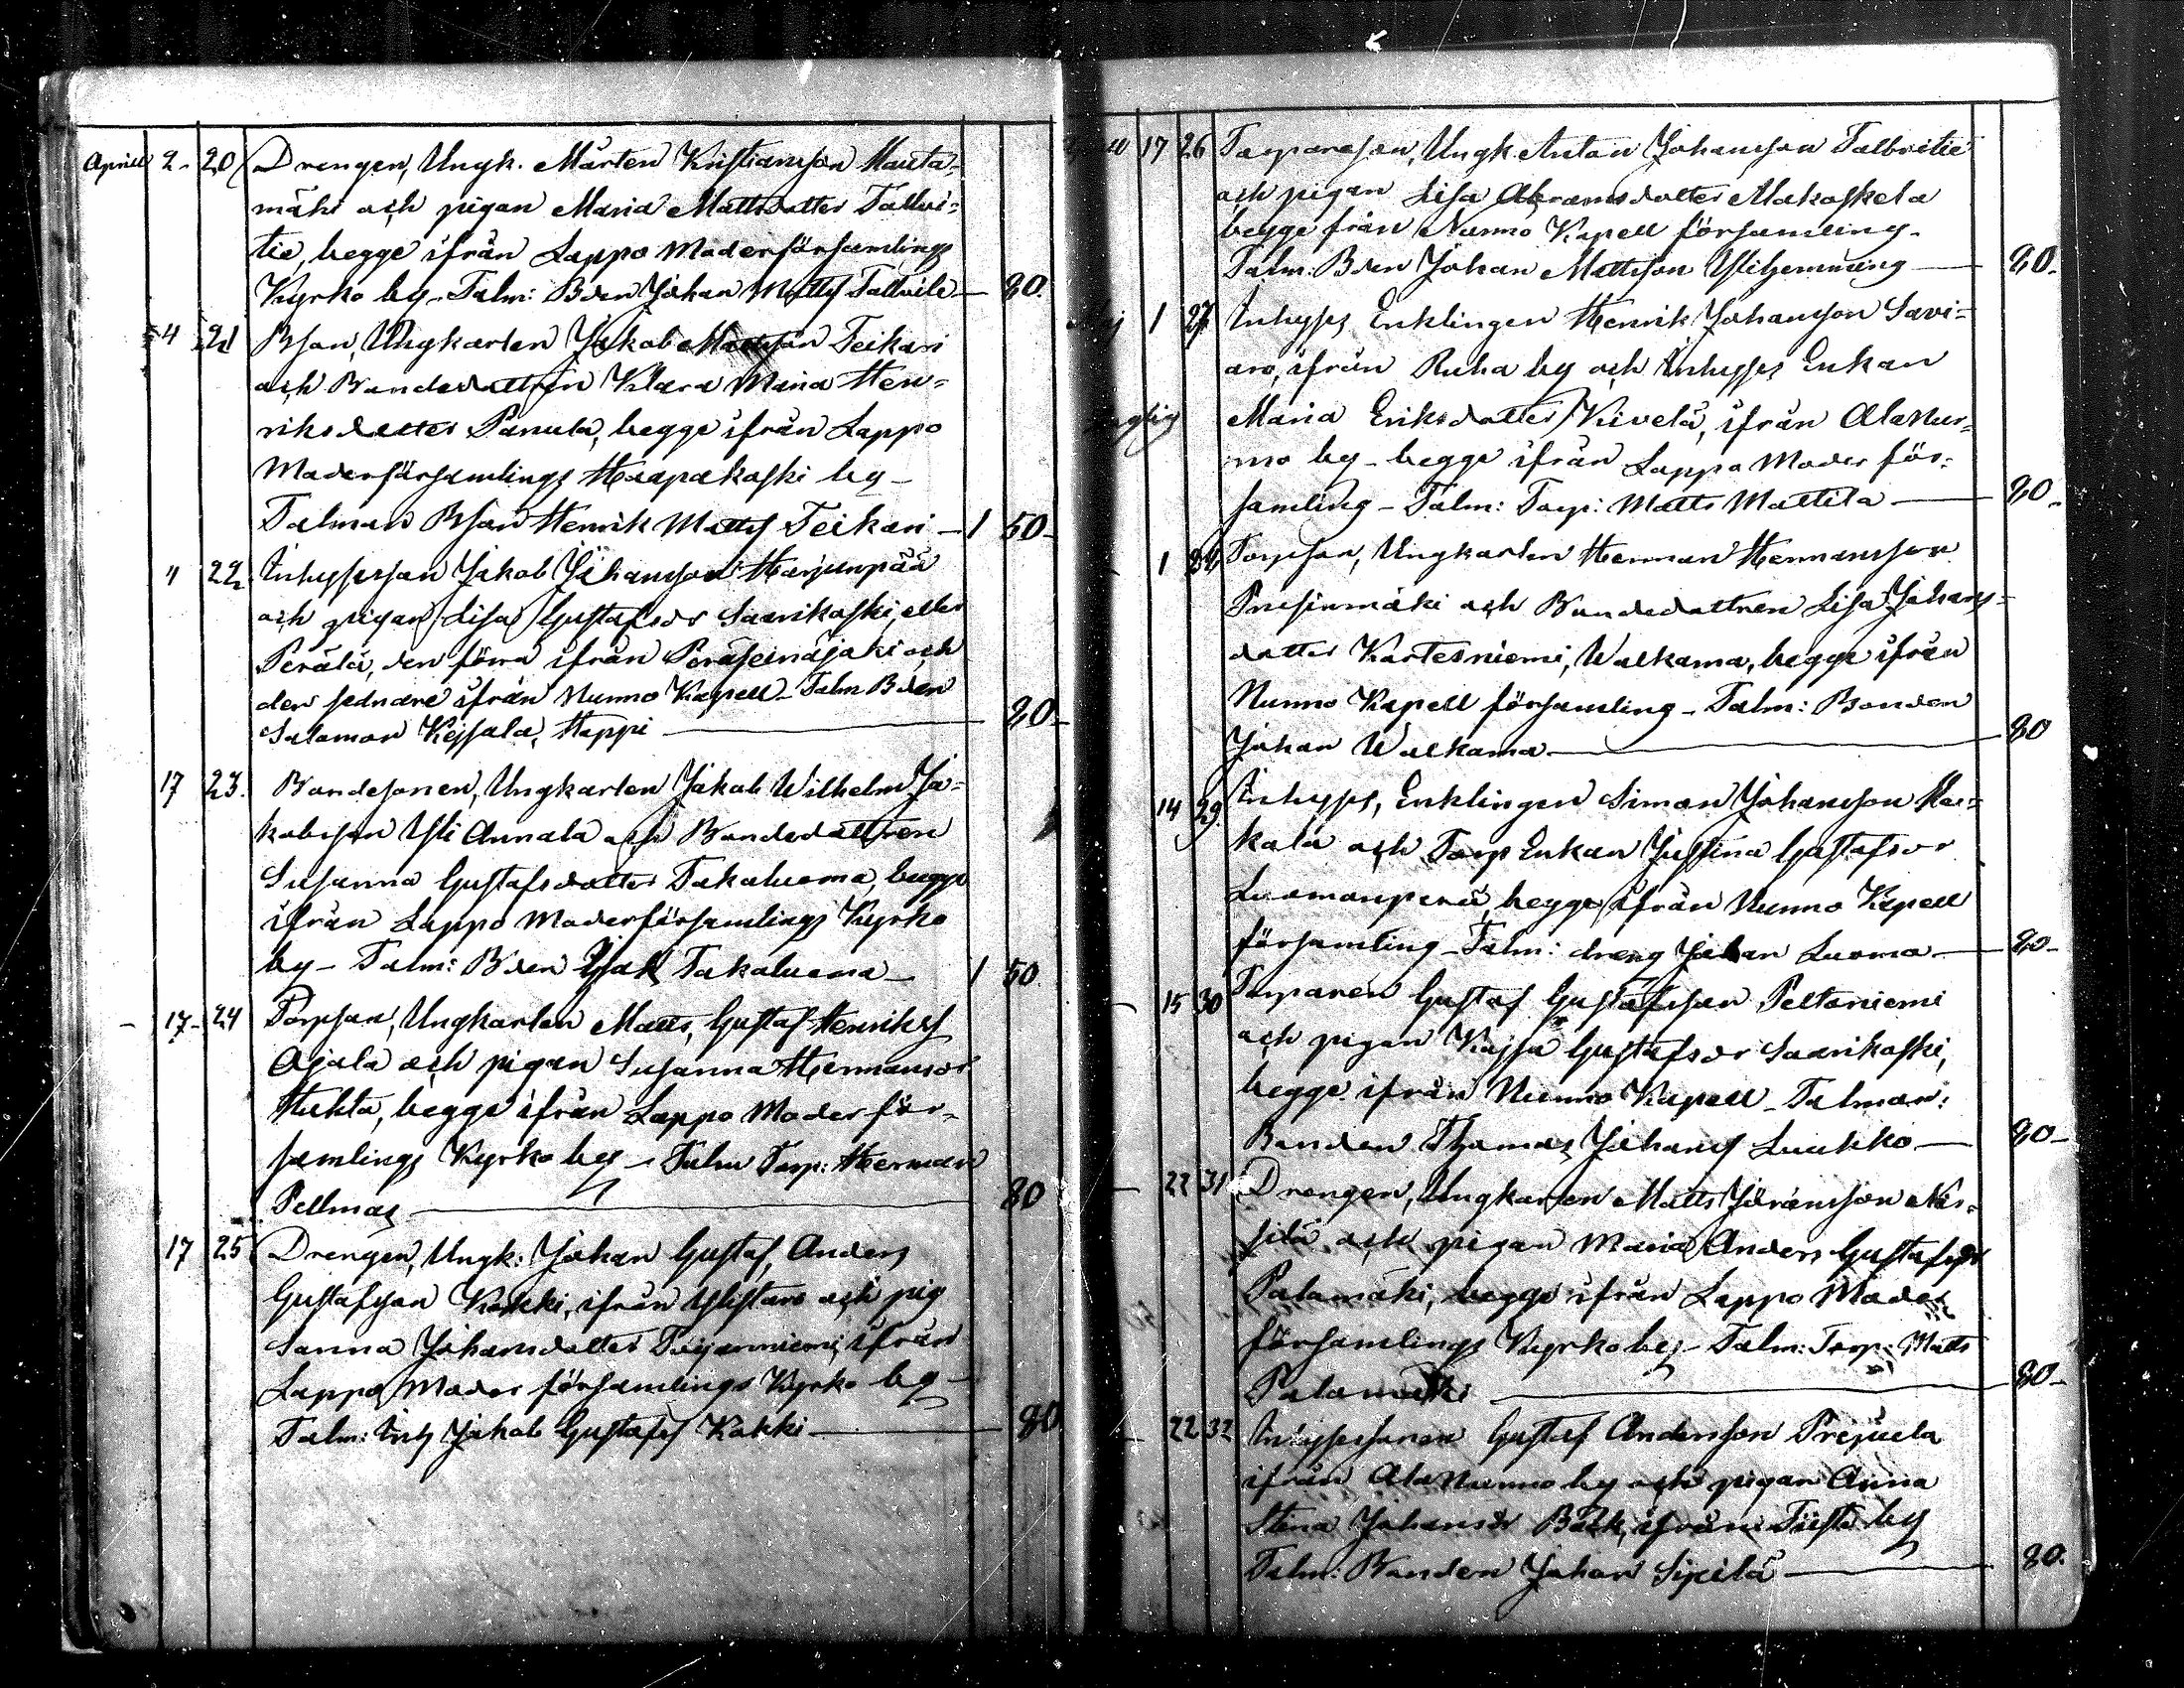 Aprill 2. 20 Drengen, Ungk. Mårten Kristiansson Mauta-
mäki och pigan Maria Mattsdotter Tallvi-
tie, begge ifrån Lappo Moderförsamlings
Kyrko by - Talm: Bden Johan Matts Tallvitie — 80.
4 21 Bson, Ungkarlen Jakob Mattsson Teikari
och Bondedottren Klara Maria Hen-
riksdotter Panula, begge ifrån Lappo
Moderförsamlings Haapakoski by -
Talman Bson Henrik Mattss Teikari — 1 50-
4 22 Inhysesson Jakob Johansson Harjunpää
och pigan Lisa Gustafsdr Saarikoski, eller
Perälä, den förra ifrån Peräseinäjoki och
den sednare ifrån Nurmo Kapell - Talm Bden
Salomon Keissala, Happi — 80-
17 23. Bondesonen, Ungkarlen Jakob Wilhelm Ja-
kobsson Yli Annala och Bondedottren
Susanna Gustafsdotter Takaluoma, begge
ifrån Lappo Moderförsamlings Kyrko
by - Talm: Bden Isak Takaluoma — 1 50.
- 17- 24 Torpson, Ungkarlen Matts, Gustaf Henrikss
Ajala och pigan Susanna Hermansdr
Huhta, begge ifrån Lappo Moder för-
samlings Kyrko by - Talm Torp: Herman
Pellmas — 80
17 25 Drengen, Ungk: Johan Gustaf, Anders
Gustafsson Kokki, ifrån Ylistaro och pig
Sanna Johansdotter Toijanniemi, ifrån
Lappo Moder församlings Kyrko by -
Talm: Inh Jakob Gustafss Kokki — 80
17 26 Torpareson, Ungk. Anton Johansson Talvitie
och pigan Lisa Abramsdotter Makoskela
begge från Nurmo Kapell församling -
Talm: Bden Johan Mattsson Ylihemming — 80.
1 27 Inhyses Enklingen Henrik Johansson Savi-
aro, ifrån Ruha by och Inhyses Enkan
Maria Eriksdotter Kivelä, ifrån Ala Nur-
mo by - begge ifrån Lappo Moder för-
samling - Talm: Torp: Matts Mattila — 80-
1 28 Torpson, Ungkarlen Herman Hermansson
Pnesinmäki och Bondedottren Lisa Johans-
dotter Kortesniemi, Walkama, begge ifrån
Nurmo Kapell församling - Talm: Bonden
Johan Walkama — 80
14 29. Inhyses, Enklingen Simon Johansson Kar-
kala och Torp Enkan Justina Gustafsdr
Luomanperä, begge ifrån Nurmo Kapell
församling - Talm: dreng Johan Luoma — 80-
15 30 Torparen Gustaf Gustafsson Peltoniemi
och pigan Kajsa Gustafsdr Saarikoski,
begge ifrån Nurmo Kapell - Talman:
Bonden Thomas Johanss Luukko — 80-
- 22 31 Drengen, Ungkarlen Matts Jöransson Nis-
silä och pigan Maria Anders Gustafsdr
Palomäki, begge ifrån Lappo Moder
församlings Kyrko by - Talm: Torp: Matts
Palomäki — 80-
- 22 32 Inhysessonen Gustaf Andersson Prejuela
ifrån Ala Nurmo by och pigan Anna
Stina Johansdr Back, ifrån Tiisto by
Talm: Bonden Johan Sipilä — 80.